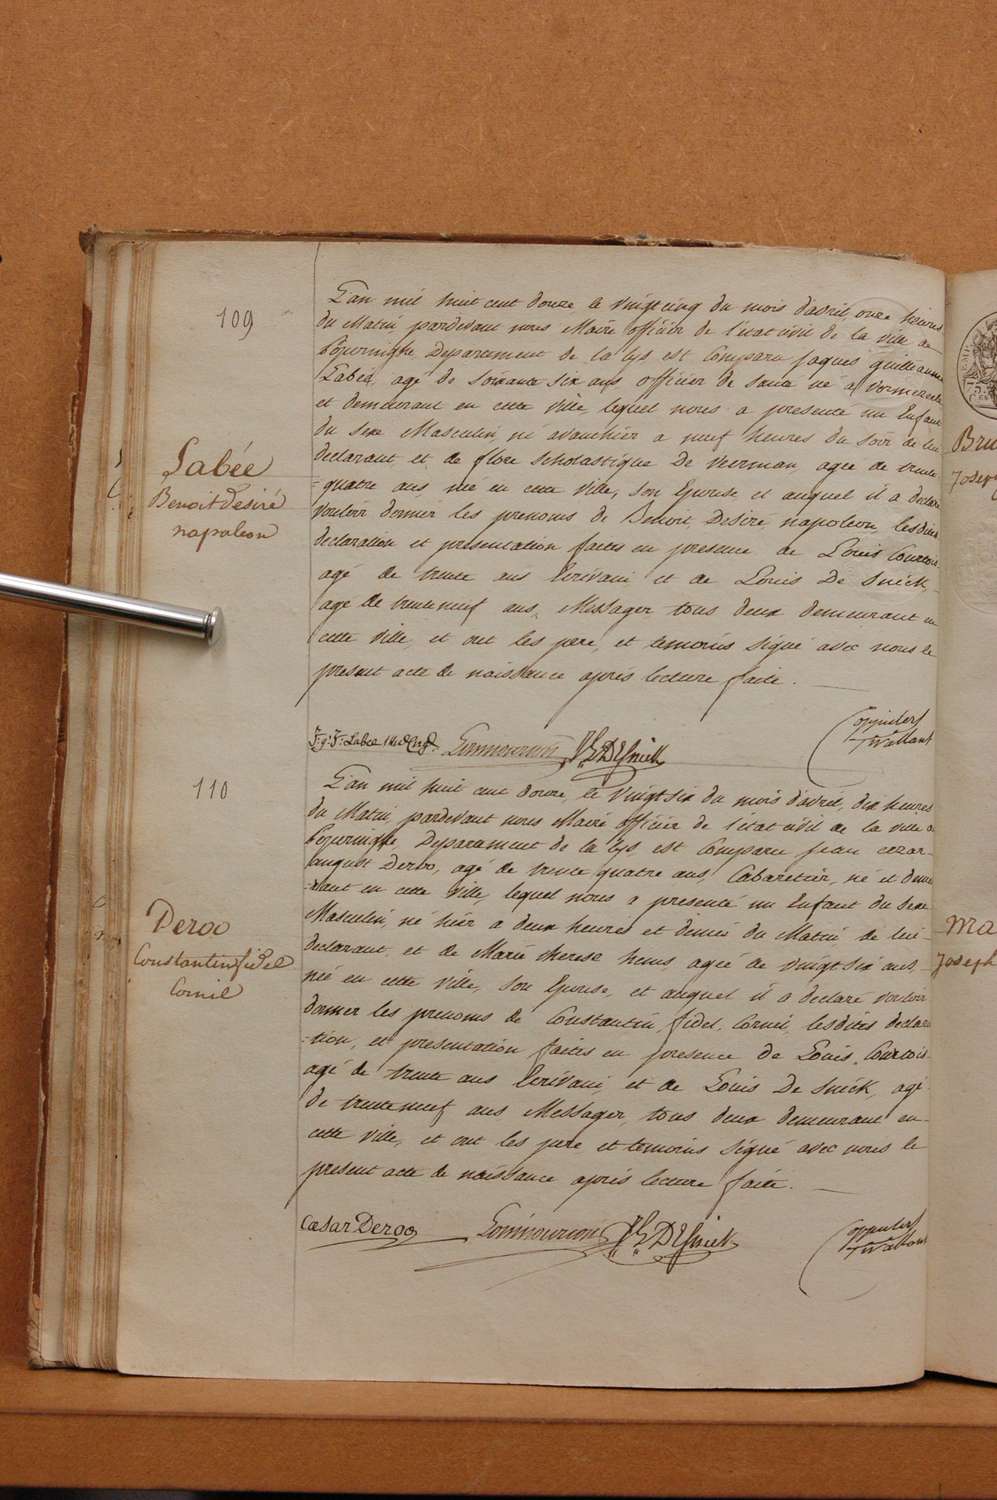 109
Labée
Benoit Desiré
napoleon
L'an mil huit cent douze le vingt cinq du mois d'avril onze heures
du Matin pardevant nous Maire officier de l'état civil de la ville de
Poperinghe, Departement de la Lys est Comparu Jaques Guilleaume
Labée, agé de soixante six ans officier de santé né a Vormezeele
et demeurant en cette ville lequel nous a presenté un Enfant
du sexe Masculin, né avanthier a neuf heures du soir de lui
declarant et de flore scholastique De veerman, agée de trente
=quatre ans née en cette ville, son Epouse et auquel il a declaré
vouloir donner les prenoms de Benoit, Desiré, napoleon, lesdites
declaration et presentation faites en presence de Louis Courtois
agé de trente ans Ecrivain et de Louis De Snick,
agé de trenteneuf ans, Messager tous deux demeurant en
cette ville, et ont les pere, et temoins signé avec nous le
present acte de naissance après lecture faite.
L De Snick
110
Deroo
Constantin fidel
Cornil
L'an mil huit cent douze, le vingt six du mois d'avril, dix heures
du Matin, pardevant nous Maire officier de l'état civil de la ville de
Poperinghe, Departement de la Lys est Comparu jean cezar
august Deroo, agé de trente quatre ans, Cabaretier, né et demeu
=rant en cette ville, lequel nous a presenté un Enfant du sexe
Masculin, né hier a deux heures et demie du Matin de lui
declarant, et de Marie therese heus, agée de vingt six ans,
née en cette ville, son Epouse, et auquel il a declaré vouloir
donner les prenoms de Constantin, fidel, Cornil, lesdites declara
=tion, et presentation faites en presence de Louis Courtois
agé de trente ans Ecrivain, et de Louis De Snick, agé
de trenteneuf ans Messager, tous deux demeurant en
cette ville, et ont les pere et temoins signé avec nous le
present acte de naissance après lecture faite.
Cæsar Deroo L De Snick
Bru
Joseph
Ma
Joseph